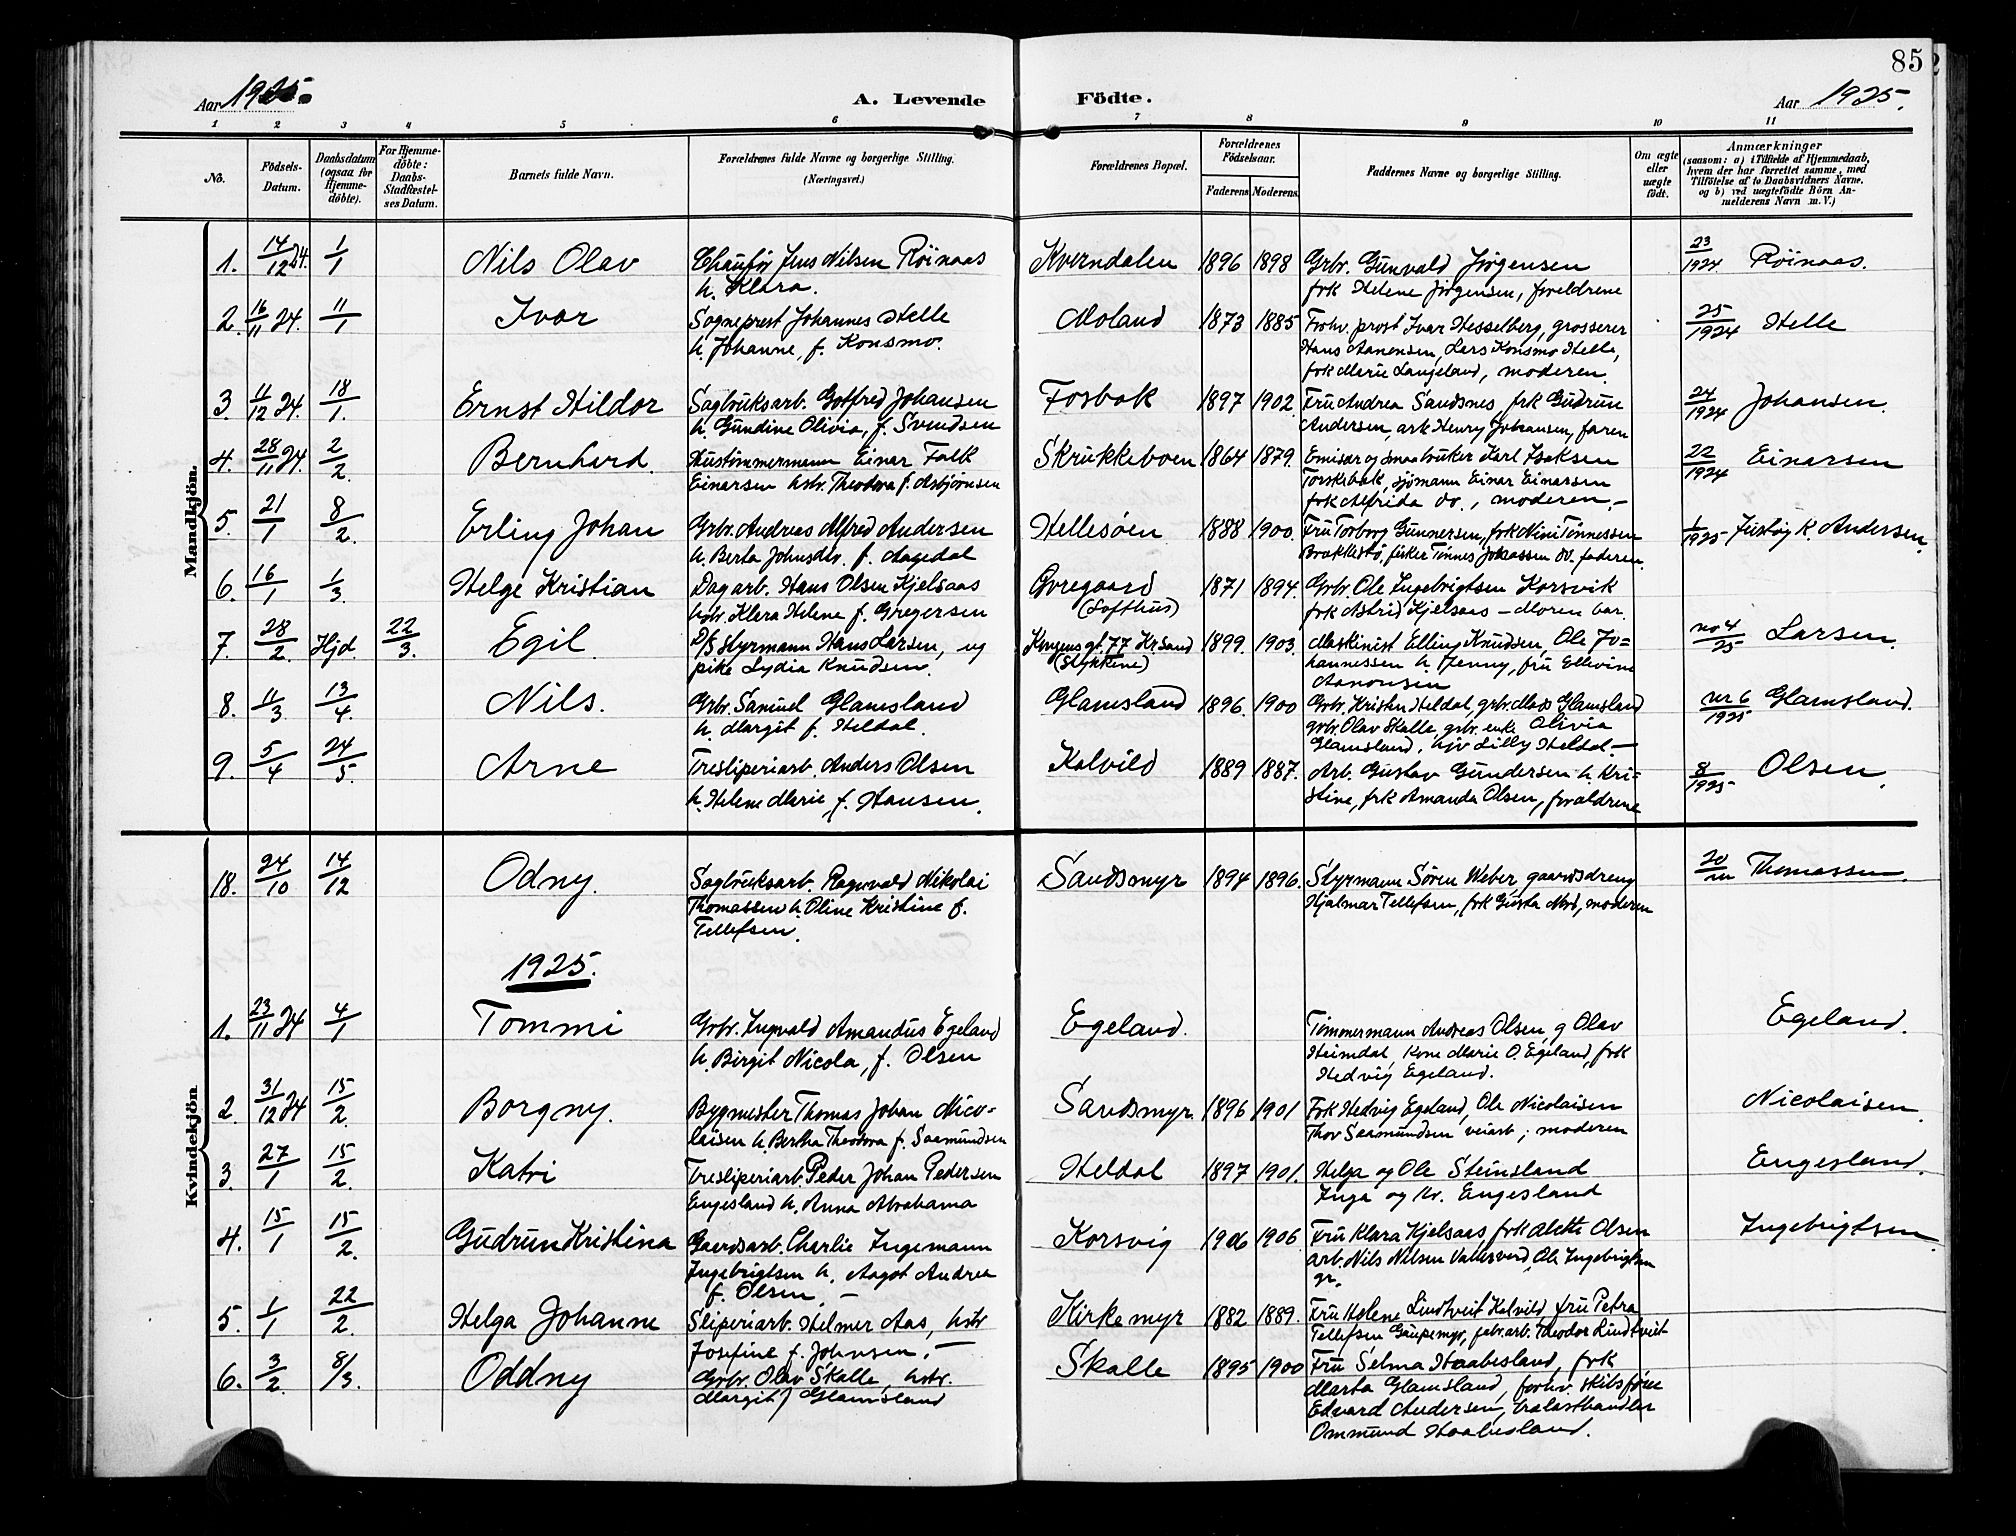 85
Aar 1925.
A. Levende Födte.
Aar 1925.
1 2 3 4 5 6 7 8 9 10 11
No.
Födsels-Datum.
Daabsdatum (ogsaa for Hjemme-döbte).
For Hjemme-döbte: Daabs-Stadfæstel-ses Datum.
Barnets fulde Navn.
Forældrenes fulde Navne og borgerlige Stilling. (Næringsvei.)
Forældrenes Bopæl.
Forældrenes Födselsaar.
Faderens. Moderens.
Faddernes Navne og borgerlige Stilling.
Om ægte eller uægte födt.
Anmærkninger (saasom: a) i Tilfælde af Hjemmedaab, hvem der har forrettet samme, med Tilföielse af to Daabsvidners Navne, og b) ved uægtefödte Börn An-melderens Navn m. V.)
Mandkjön.
1. 14/12 24. 1/1 Nils Olav Chaufför Jens Nilsen Röinaas Kverndalen 1896 1898 Grbr. Gunvald Jörgensen 23/1924 Röinaas.
h. Klara. frk Helene Jörgensen, foreldrene
2. 16/11 24. 11/1 Ivar Sogneprest Johannes Helle Moland 1873 1885 Forhv. prost Ivar Hesselberg, grosserer 25/1924 Helle
h. Johanne, f. Konsmo. Hans Aanensen, Lars Konsmo Helle,
frk Marie Langeland, moderen.
3. 11/12 24. 18/1. Ernst Hildor Sagbruksarb. Gotfred Johansen Fosbak 1897 1902. Fru Andrea Sandsnes, frk Gudrun 24/1924 Johansen.
h. Gundine Olivia, f. Svendsen Andersen, ark Henry Johansen, faren
4. 28/11 24. 2/2. Bernhard. Hustömmermann Einar Falk Skrukkeboen 1864 1879. Emisær og smaabruker Karl Isaksen 22/1924 Einarsen
Einarsen hstr. Theodora f. Asbjörnsen Torskebak, sjömann Einar Einarsen
frk Alfrida do., moderen.-
5. 21/1 8/2. Erling Johan Grbr. Andreas Alfred Andersen Hellesöen 1888 1900. Fru Torborg Gunnersen, frk Nini Tönnessen 1/1925 Justöy K. Andersen.
h. Berta Johnsdtr. f. Aagedal Brækkestö, fisker Tönnes Johnssen do. faderen.
6. 16/1 1/3. Helge Kristian Dagarb. Hans Olsen Kjelsaas Övregaard 1871 1894. Grbr. Ole Ingebrigtsen Korsvik
hstr. Klara Helene f. Gregersen (Lofthus) frk Astrid Kjelsaas - Moren bar.
7. 28/2. Hjd. 22/3. Egil. D/S Styrmann Hans Larsen, og Kongens gt. 77 Kr.sand 1899. 1903. Maskinist Elling Knudsen, Ole Jo= no 4/25 Larsen.
pike Lydia Knudsen. (Stykkene) hannessen h Jenny, fru Ellevine
Aanonsen
8. 11/3 13/4. Nils. Grbr. Samuel Glamsland Glamsland 1896. 1900 Grbr. Kristen Heldal, grbr. Mads Glamsland nr 6/1925 Glamsland.
h. Margit f. Heldal. grbr. Olav Skalle, grbr. enke Olivia
Glamsland, hjv Lilly Heldal -
9. 5/4 24/5. Arne Tresliperiarb. Anders Olsen Kalvild 1889 1887. Arb. Gustav Gundersen h. Kri= 8/1925 Olsen.
h. Helene Marie f. Hansen. stine, frk Amanda Olsen, foræeldrene
Kvindekjön
18. 24/10 14/12 Odny. Sagbruksarb. Ragnvald Nikolai Sandsmyr 1894 1896. Styrmann Sören Weber, gaardsdreng 20/ Thomassen.
Thomassen h. Oline Kristine f. Hjalmar Tellefsen, frk Gusta , moderen
Tellefsen.
1925.
1. 23/11 24 4/1 Tommi Grbr. Ingvald Amandus Egeland Egeland. Tömmermann Andreas Olsen, g Olav Egeland.
h. Birgit Nicola, f. Olsen Heimdal, kone Marie O. Egeland, frk
Hedvig Egeland.
2. 31/12 24 15/2. Borgny. Bygmester Thomas Johan Nico= Sandsmyr 1896 1901 Frk Hedvig Egeland, Ole Nicolaisen Nicolaisen.
laisen h. Bertha Theodora f. Saamundsen Thor Saamundsen veiarb; moderen
3. 27/1 15/2. Katri Tresliperiarb Peder Johan Pedersen Heldal 1897 1901. Helga og Ole Steinsland Engesland.
Engesland h. Anna Abrahama Inga og Kr. Engesland
4. 15/1 15/2. Gudrun Kristina Gaardsarb. Charlie Ingemann Korsvig 1906 1906. Fru Klara Kjelsaas, frk Alette Olsen Ingebrigtsen.
Ingebrigtsen h. Aagot Andrea arb. Nils Nilsen , Ole Ingebrigtsen
f. Olsen. - gr.
5. 1/1 22/2. Helga Johanne Sliperiarb. Helmer Aas, hstr Kirkemyr 1882 1889. Fru Helene Lindtveit Kalvild, fru Petra
Josefine f. Johnsen. - Tellefsen Gaupemyr, fabr.arb. Theodor Lindtveit
6. 3/2. 8/3. Oddny Grbr. Olav Skalle, hstr. Skalle 1895 1900 Fru Selma Haabesland, frk
Margit f Glamsland Marta Glamsland, forhv. skibsförer
Edvard Andersen, trælasthandler
Ommund Haabesland.